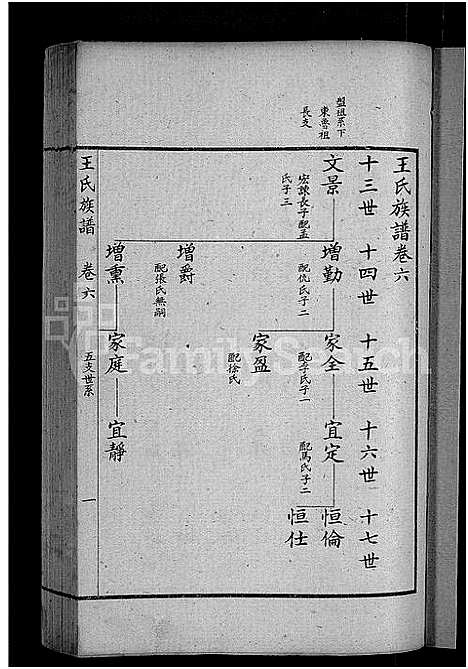 盟祖系下
東魯祖
長支
王氏族譜卷六
十三世 十四世 十五世 十六世 十七世
文景 增勤 家全 宜定 恒倫
宏諫長子配孟
氏子三
配仇氏子二
配李氏子一
配馬氏子二
恒仕
家盈
配徐氏
增爵
配張氏無嗣
增熏 家庭 宜靜
王氏族譜 卷六 五支世系 一
FamilySearch